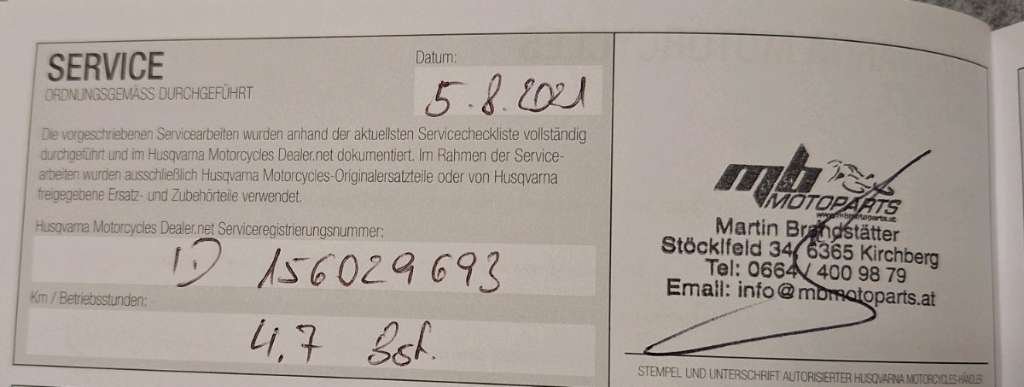 SERVICE
ORDNUNGSGEMÄSS DURCHGEFÜHRT
Datum:
5.8.2021
Die vorgeschriebenen Servicearbeiten wurden anhand der aktuellsten Servicecheckliste vollständig
durchgeführt und im Husqvarna Motorcycles Dealer.net dokumentiert. Im Rahmen der Service-
arbeiten wurden ausschließlich Husqvarna Motorcycles-Originalersatzteile oder von Husqvarna
freigegebene Ersatz- und Zubehörteile verwendet.
Husqvarna Motorcycles Dealer.net Serviceregistrierungsnummer:
1.) 156029693
Km / Betriebsstunden:
4,7 Bst.
mb
MOTOPARTS
www.mbmotoparts.at
Martin Brandstätter
Stöcklfeld 34, 6365 Kirchberg
Tel: 0664 / 400 98 79
Email: info@mbmotoparts.at
STEMPEL UND UNTERSCHRIFT AUTORISIERTER HUSQVARNA MOTORCYCLES-HÄNDLER